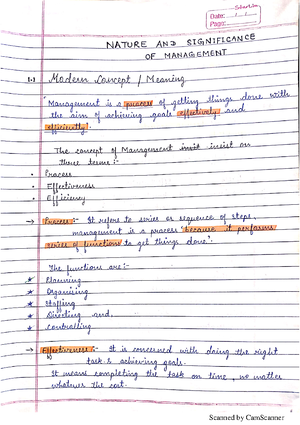 Date:
Page:
NATURE AND SIGNIFICANCE
OF MANAGEMENT
1.1 Modern Concept / Meaning
"Management is a process of getting things done with
the aim of achieving goals effectively and
efficiently".
The concept of Management insist on
three terms:-
• Process
• Effectiveness
• Efficiency
→ Process:- It refers to series or sequence of steps,
management is a process "because it performs
series of functions to get things done".
The functions are:-
★ Planning
★ Organising
★ Staffing
★ Directing and,
★ Controlling
→ Effectiveness:- It is concerned with doing the right
task & achieving goals.
It means completing the task on time, no matter
whatever the cost.
Scanned by CamScanner